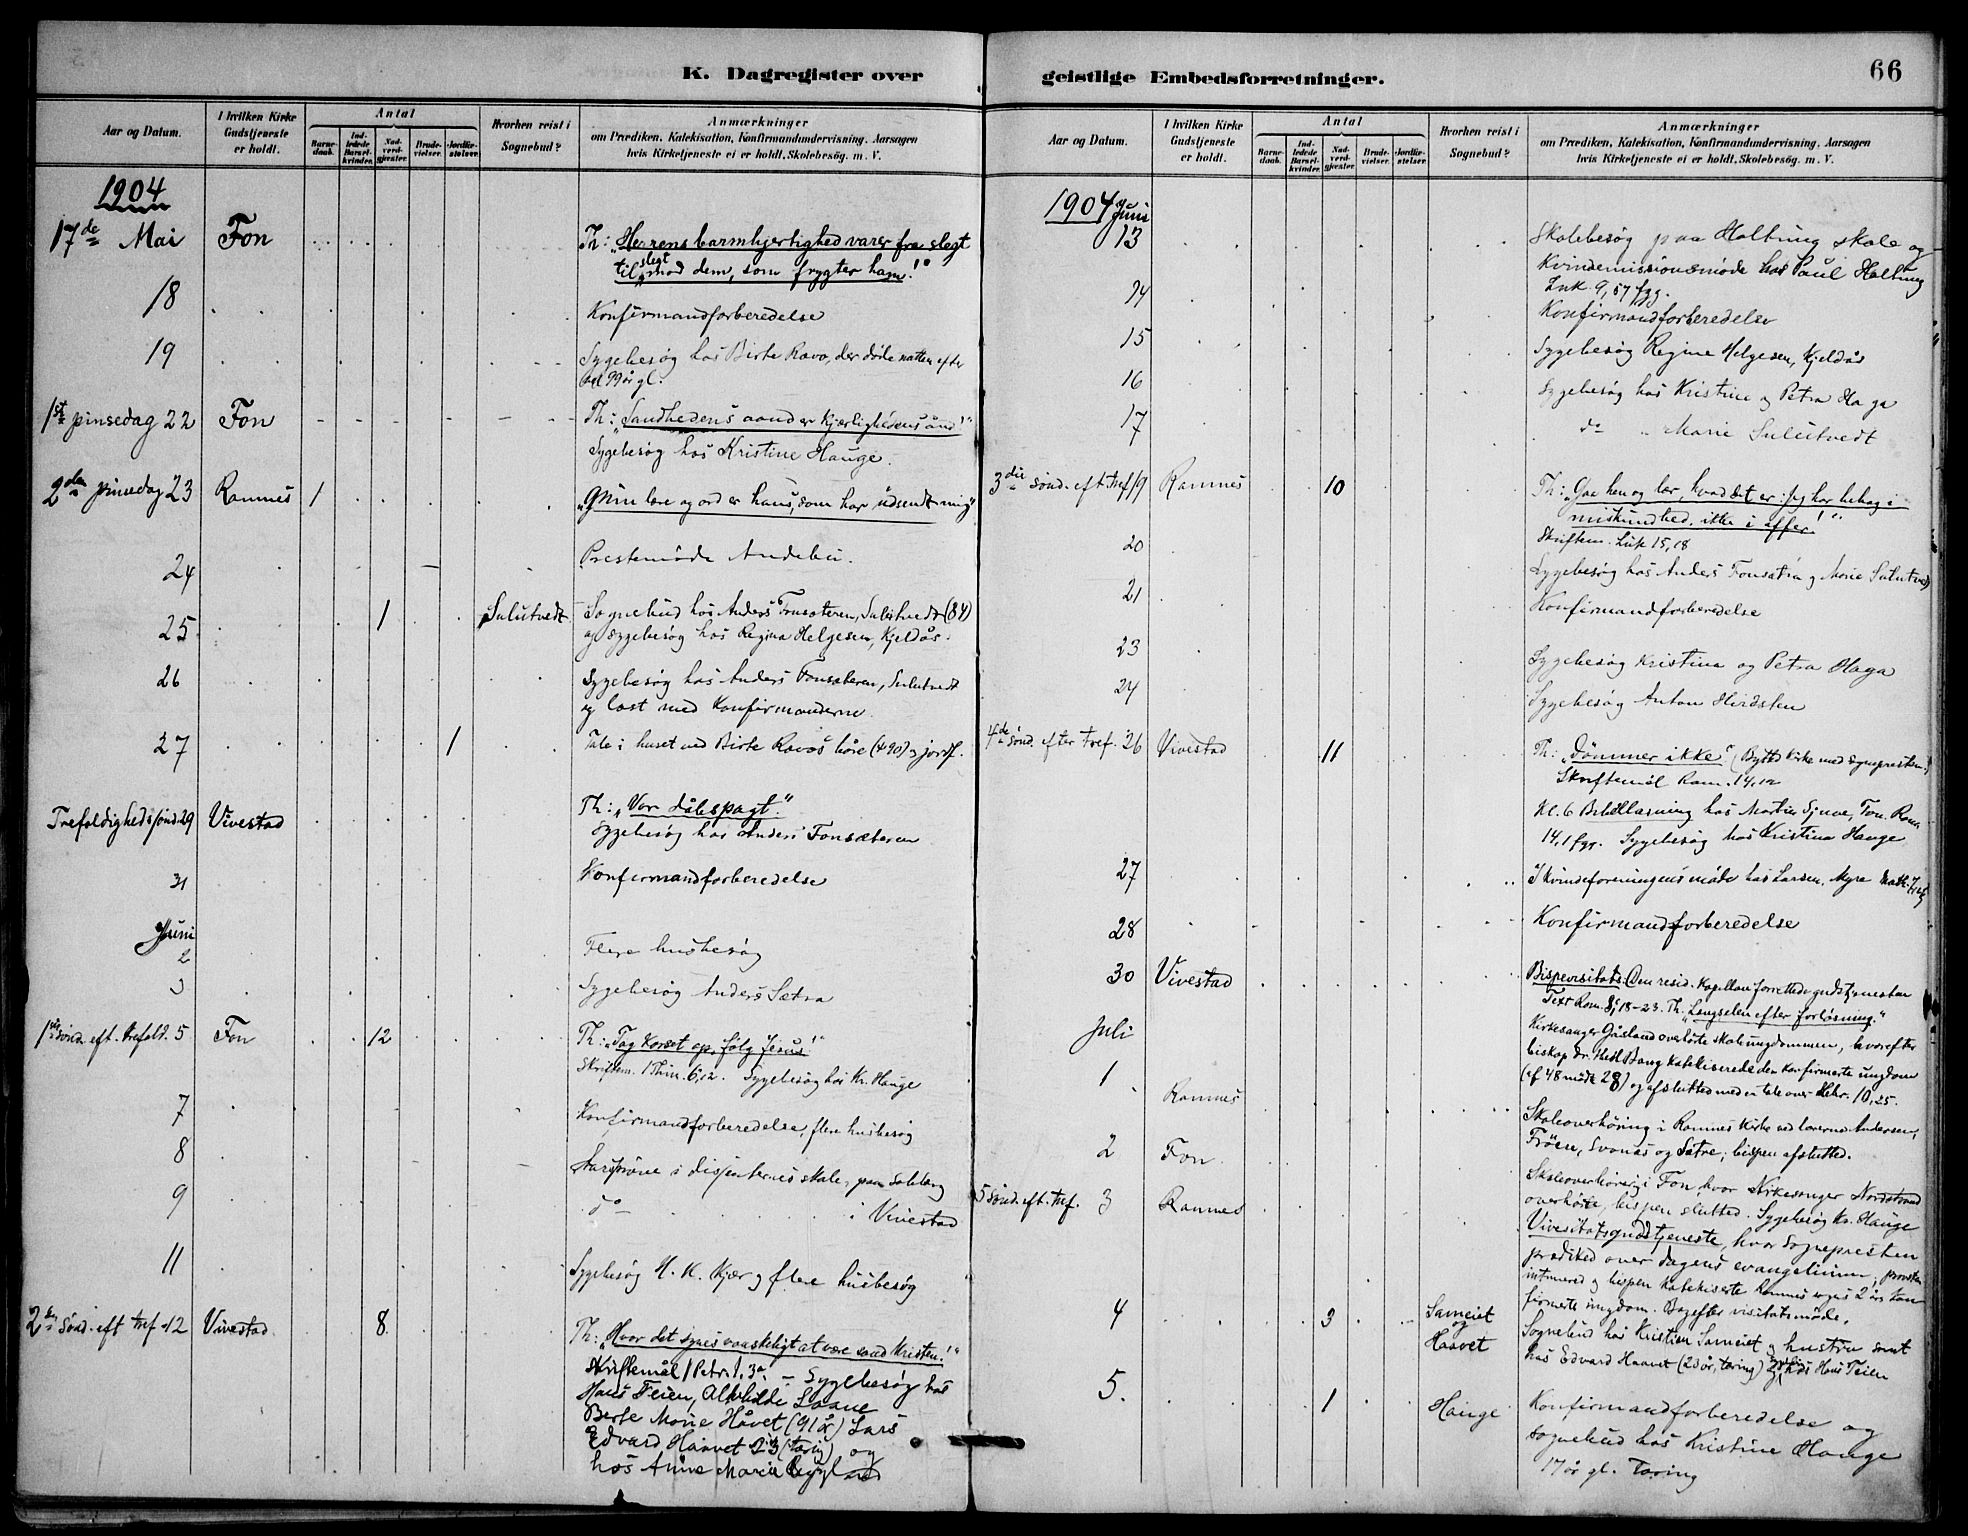 K. Dagregister over
Aar og Datum.
I hvilken Kirke Gudstjeneste er holdt.
Antal
Barnedaab.
Indledede Barselkvinder.
Nadverdgjester.
Brudevielser.
Jordfæstelser.
Hvorhen reist i Sognebud?
Anmærkninger
om Prædiken, Katekisation, Konfirmandundervisning. Aarsagen
hvis Kirketjeneste ei er holdt. Skolebesög. m. V.
1904
17de Mai Fon Th: „Herrens barmhjertighed varer fra slegt
til slegt mod dem, som frygter ham!"
18 Konfirmandforberedelse
19 Sygebesög hos Birte Ravo, der döde natten efter
99 år gl.
1ste pinsedag 22 Fon Th: „Sandhedens aand er Kjærlighedens ånd!"
Sygebesög hos Kristine Hauge.
2den pinsedag 23 Ramnes 1 „Min lære og ord er hans, som har udsendt mig"
24 Prestemöde Andebu.
25 1 Sulutvedt Sognebud hos Anders Fonsæteren, Sulutvedt (84)
og sygebesög hos Regina Helgesen, Kjeldås.
26 Sygebesög hos Anders Fonsæteren, Sulutvedt
og læst med Konfirmanderne
27 1 Tale i huset ved Birte Ravos båre (490) og jordf.
Trefoldigheds sönd. 29 Vivestad Th: „Vor dåbspagt."
Sygebesög hos Anders Fonsæteren
31 Konfirmandforberedelse
Juni
2 Flere husbesög
3 Sygebesög Anders Sætra
1ste sönd. eft. trefold. 5 Fon 12 Th: „Tag Korset op, fölg Jesus!"
Skriftem. 1 Thim. 6,12. Sygebesög hos Kr. Hauge
7 Konfirmandforberedelse, flere husbesög
8 i dissenternes skole, paa
9 do i Vivestad
11 Sygebesög H. K. Kjær og flere husbesög
2den sönd. eft tref. 12 Vivestad 8 Th: „Hvor det synes vanskeligt at være sand Kristen!"
Skriftemål 1 Petr. 1,3a. – Sygebesög hos
Hans Feien, Alvhilde Saane
Berte Marie Håvet (91 år) Lars
Edvard Haavet 23 (tæring) og
hos Anne Marie
geistlige Embedsforretninger.
66
Aar og Datum.
I hvilken Kirke Gudstjeneste er holdt.
Antal
Barnedaab.
Indledede Barselkvinder.
Nadverdgjester.
Brudevielser.
Jordfæstelser.
Hvorhen reist i Sognebud?
Anmærkninger
om Prædiken, Katekisation, Konfirmandundervisning. Aarsagen
hvis Kirketjeneste ei er holdt. Skolebesög. m. V.
1904 Juni
13 Skolebesög paa Holtung skole og
Kvindemissionsmöde hos Paul Holtung
Luk. 9,57 fgg.
14 Konfirmandforberedelse
15 Sygebesög Regine Helgesen, Kjeldås
16 Sygebesög hos Kristine og Petra Haga
17 do „ Marie Sulutvedt
3die sönd. eft. tref. 19 Ramnes 10 Th: „Gaa hen og lær, hvad det er: Jeg har behag i
miskundhed, ikke i offer!"
Skriftem. Luk 15,18
20 Sygebesög hos Anders Fonsætra og Marie Sulutvedt
21 Konfirmandforberedelse
23 Sygebesög Kristina og Petra Haga
24 Sygebesög Anton Hvidsten
4de sönd. efter tref. 26 Vivestad 11 Th: „Dömmer ikke" (Byttet kirke med sognepresten!)
Skriftemål Rom. 14,12
Kl. 6 Bibellæsning hos Martin Fon. Rom.
14,1 fgg. Sygebesög hos Kristina Hauge
27 I kvindeforeningens möde hos Larsen, Myre
28 Konfirmandforberedelse
30 Vivestad Bispevisitats: (Den resid. Kapellan forrettede gudstjenesten
Text Rom. 8, 18–23. Th. „Længselen efter forlösning."
Kirkesanger Gåsland overhörte skoleungdommen, hvorefter
biskop dr. Bang katekiserede den konfirmerte ungdom
(af 48 mödte 28) og afsluttede med en tale over Hebr. 10,25.
Juli
1 Ramnes Skoleoverhöring i Ramnes Kirke ved lærerne Andersen,
Fröen, Svonås og Sætre; bispen afsluttede.
2 Fon Skoleoverhöring i Fon, hvor Kirkesanger Nordstrand
overhörte, bispen slutted. Sygebesög Kr. Hauge
5 Sönd. eft. tref. 3 Ramnes Visitatsgudstjeneste, hvor Sognepresten
prædiked over dagens evangelium; provsten
intonered og bispen katekiserte Ramnes sogns 2 års kon
firmerte ungdom. Bagefter visitatsmöde.
4 3 Sameiet og Haavet Sognebud hos Kristian Sameiet og hustru samt
hos Edvard Haavet (23 år, tæring) og hos Hans Feien
5. 1 Hauge Konfirmandforberedelse og
sognebud hos Kristine Hauge
17 år gl. tæring